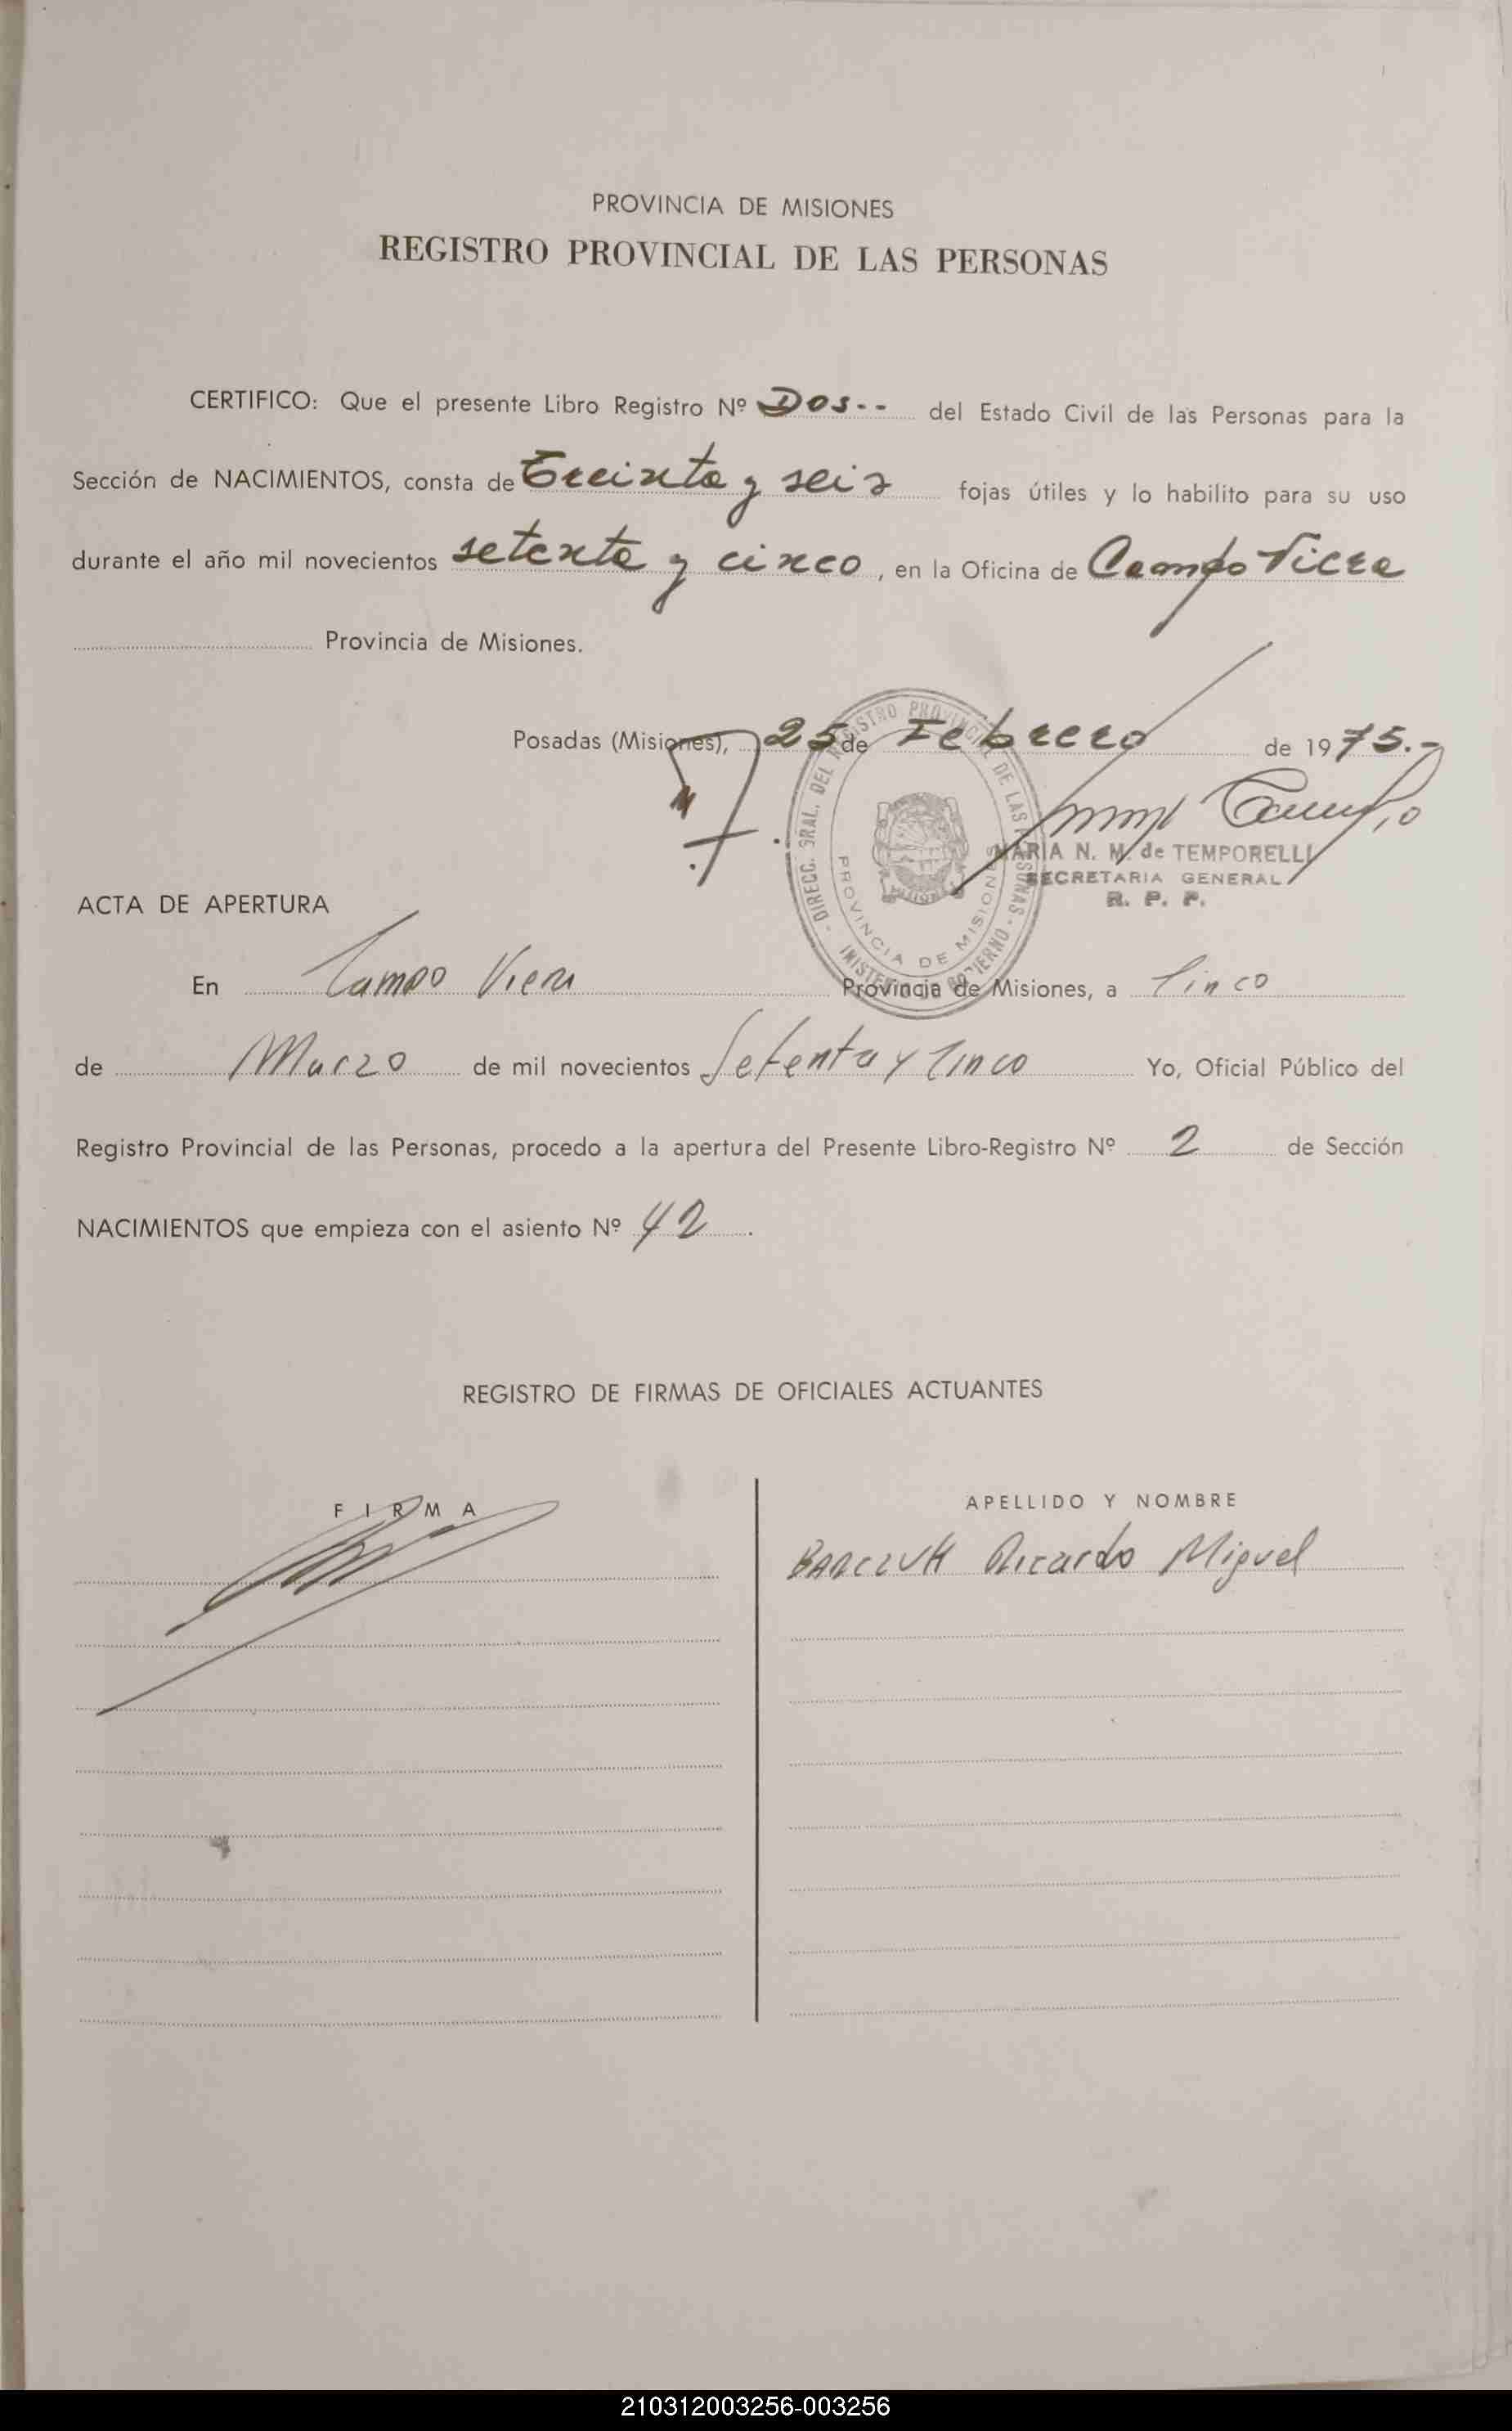 PROVINCIA DE MISIONES
REGISTRO PROVINCIAL DE LAS PERSONAS
CERTIFICO: Que el presente Libro Registro Nº Dos-- del Estado Civil de las Personas para la
Sección de NACIMIENTOS, consta de Treinta y seis fojas útiles y lo habilito para su uso
durante el año mil novecientos setenta y cinco, en la Oficina de Campo Viera
Provincia de Misiones.
Posadas (Misiones), 25 de Febrero de 1975.-
DIRECC. GRAL. DEL REGISTRO PROVINCIAL DE LAS PERSONAS - MINISTERIO DE GOBIERNO -
PROVINCIA DE MISIONES
MARIA N. M. de TEMPORELLI
SECRETARIA GENERAL
R. P. P.
ACTA DE APERTURA
En Campo Viera Provincia de Misiones, a Cinco
de Marzo de mil novecientos Setenta y Cinco Yo, Oficial Público del
Registro Provincial de las Personas, procedo a la apertura del Presente Libro-Registro Nº 2 de Sección
NACIMIENTOS que empieza con el asiento Nº 42.
REGISTRO DE FIRMAS DE OFICIALES ACTUANTES
FIRMA
APELLIDO Y NOMBRE
BARCZUK Ricardo Miguel
210312003256-003256